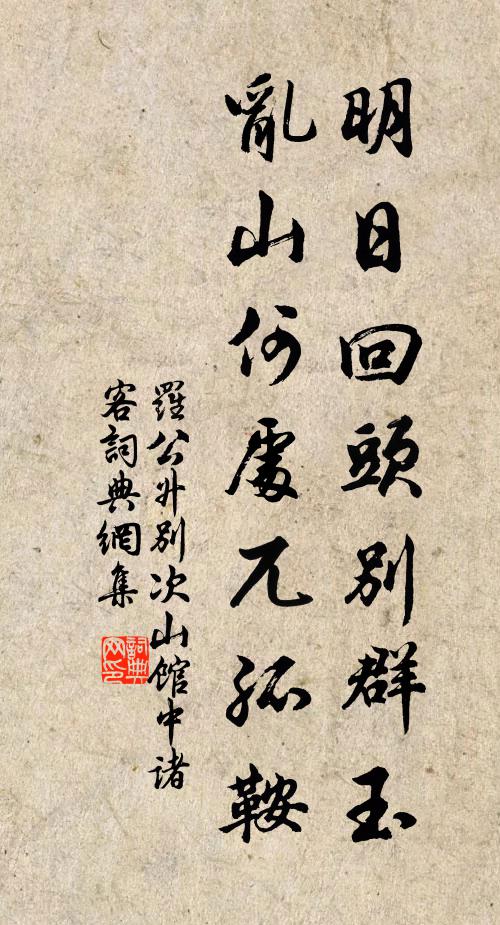 明日回頭別群玉
亂山何處兀孤鞍
羅公升別次山館中諸
客詞典網集
詞典
网印